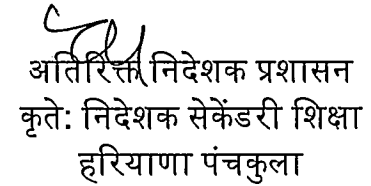 अतिरिक्त निदेशक प्रशासन
कृते: निदेशक सेकेंडरी शिक्षा
हरियाणा पंचकुला